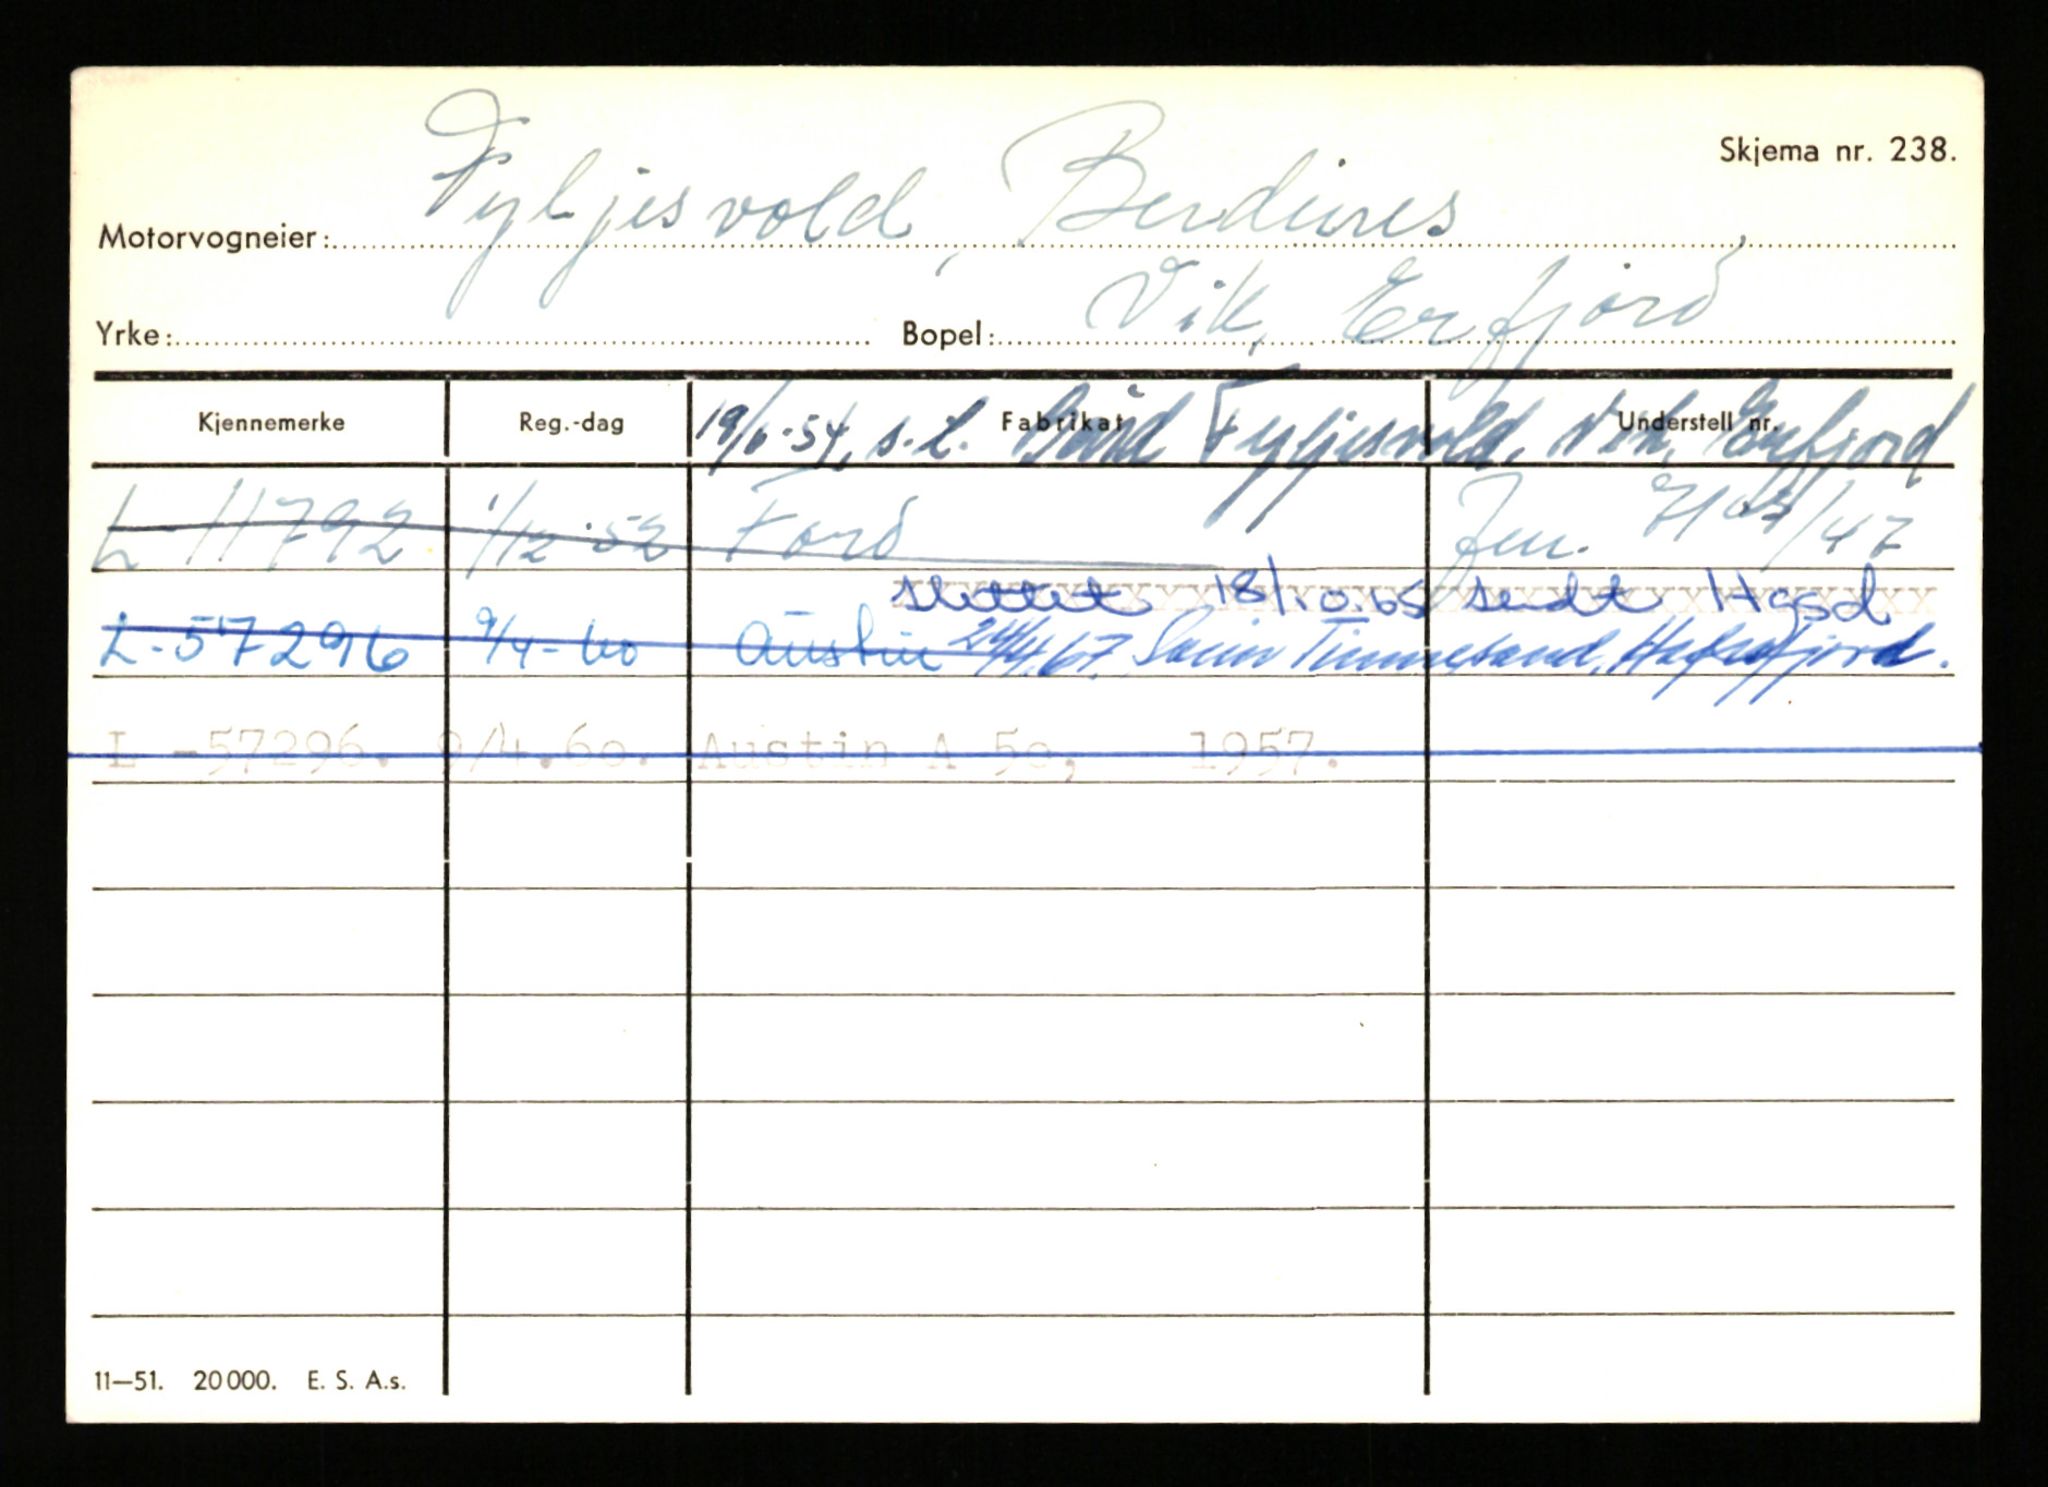 Skjema nr. 238.
Motorvogneier: Fyljesvold, Berdines,
Yrke: Bopel: Vik, Erfjord
Kjennemerke Reg.-dag Fabrikat Understell nr.
19/6-54, s.l. Fyljesvold, Vik, Erfjord
L-11792 1/12-52 Ford Jen. /47
slettet 18/10.65 sendt Hgsd
L-57296 9/4-60 Austin 24/4.67. Tinnesand, Hafrsfjord.
L -57296. 9/4.60. Austin A 50, 1957.
11—51. 20000. E. S. A.s.